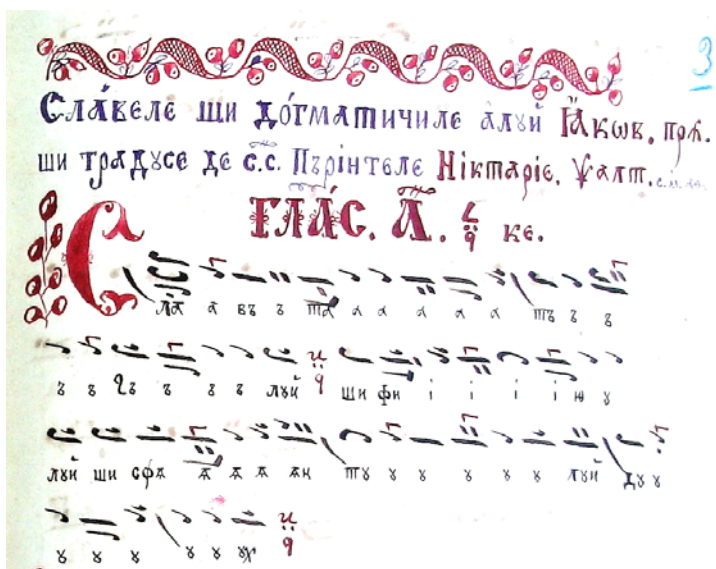 3
Сла́веле ши до́гматичиле алꙋй Іа́кѡв. прѧ.
ши традꙋсе де с.с. Пърінтеле Ніктаріе. Ѱалт.
ГЛА́С. А̃. ке.
С
ла а въ ъ та а а а а а тъ ъ ъ
ъ ъ ꙋъ ъ ъ ъ лꙋй ши фи і і і і ю ꙋ
лꙋй ши сфѫ ѫ ѫ ѫ ѫн тꙋ ꙋ ꙋ ꙋ ꙋ ꙋ лꙋй дꙋ ꙋ
ꙋ ꙋ ꙋ ꙋ ꙋ ꙋх